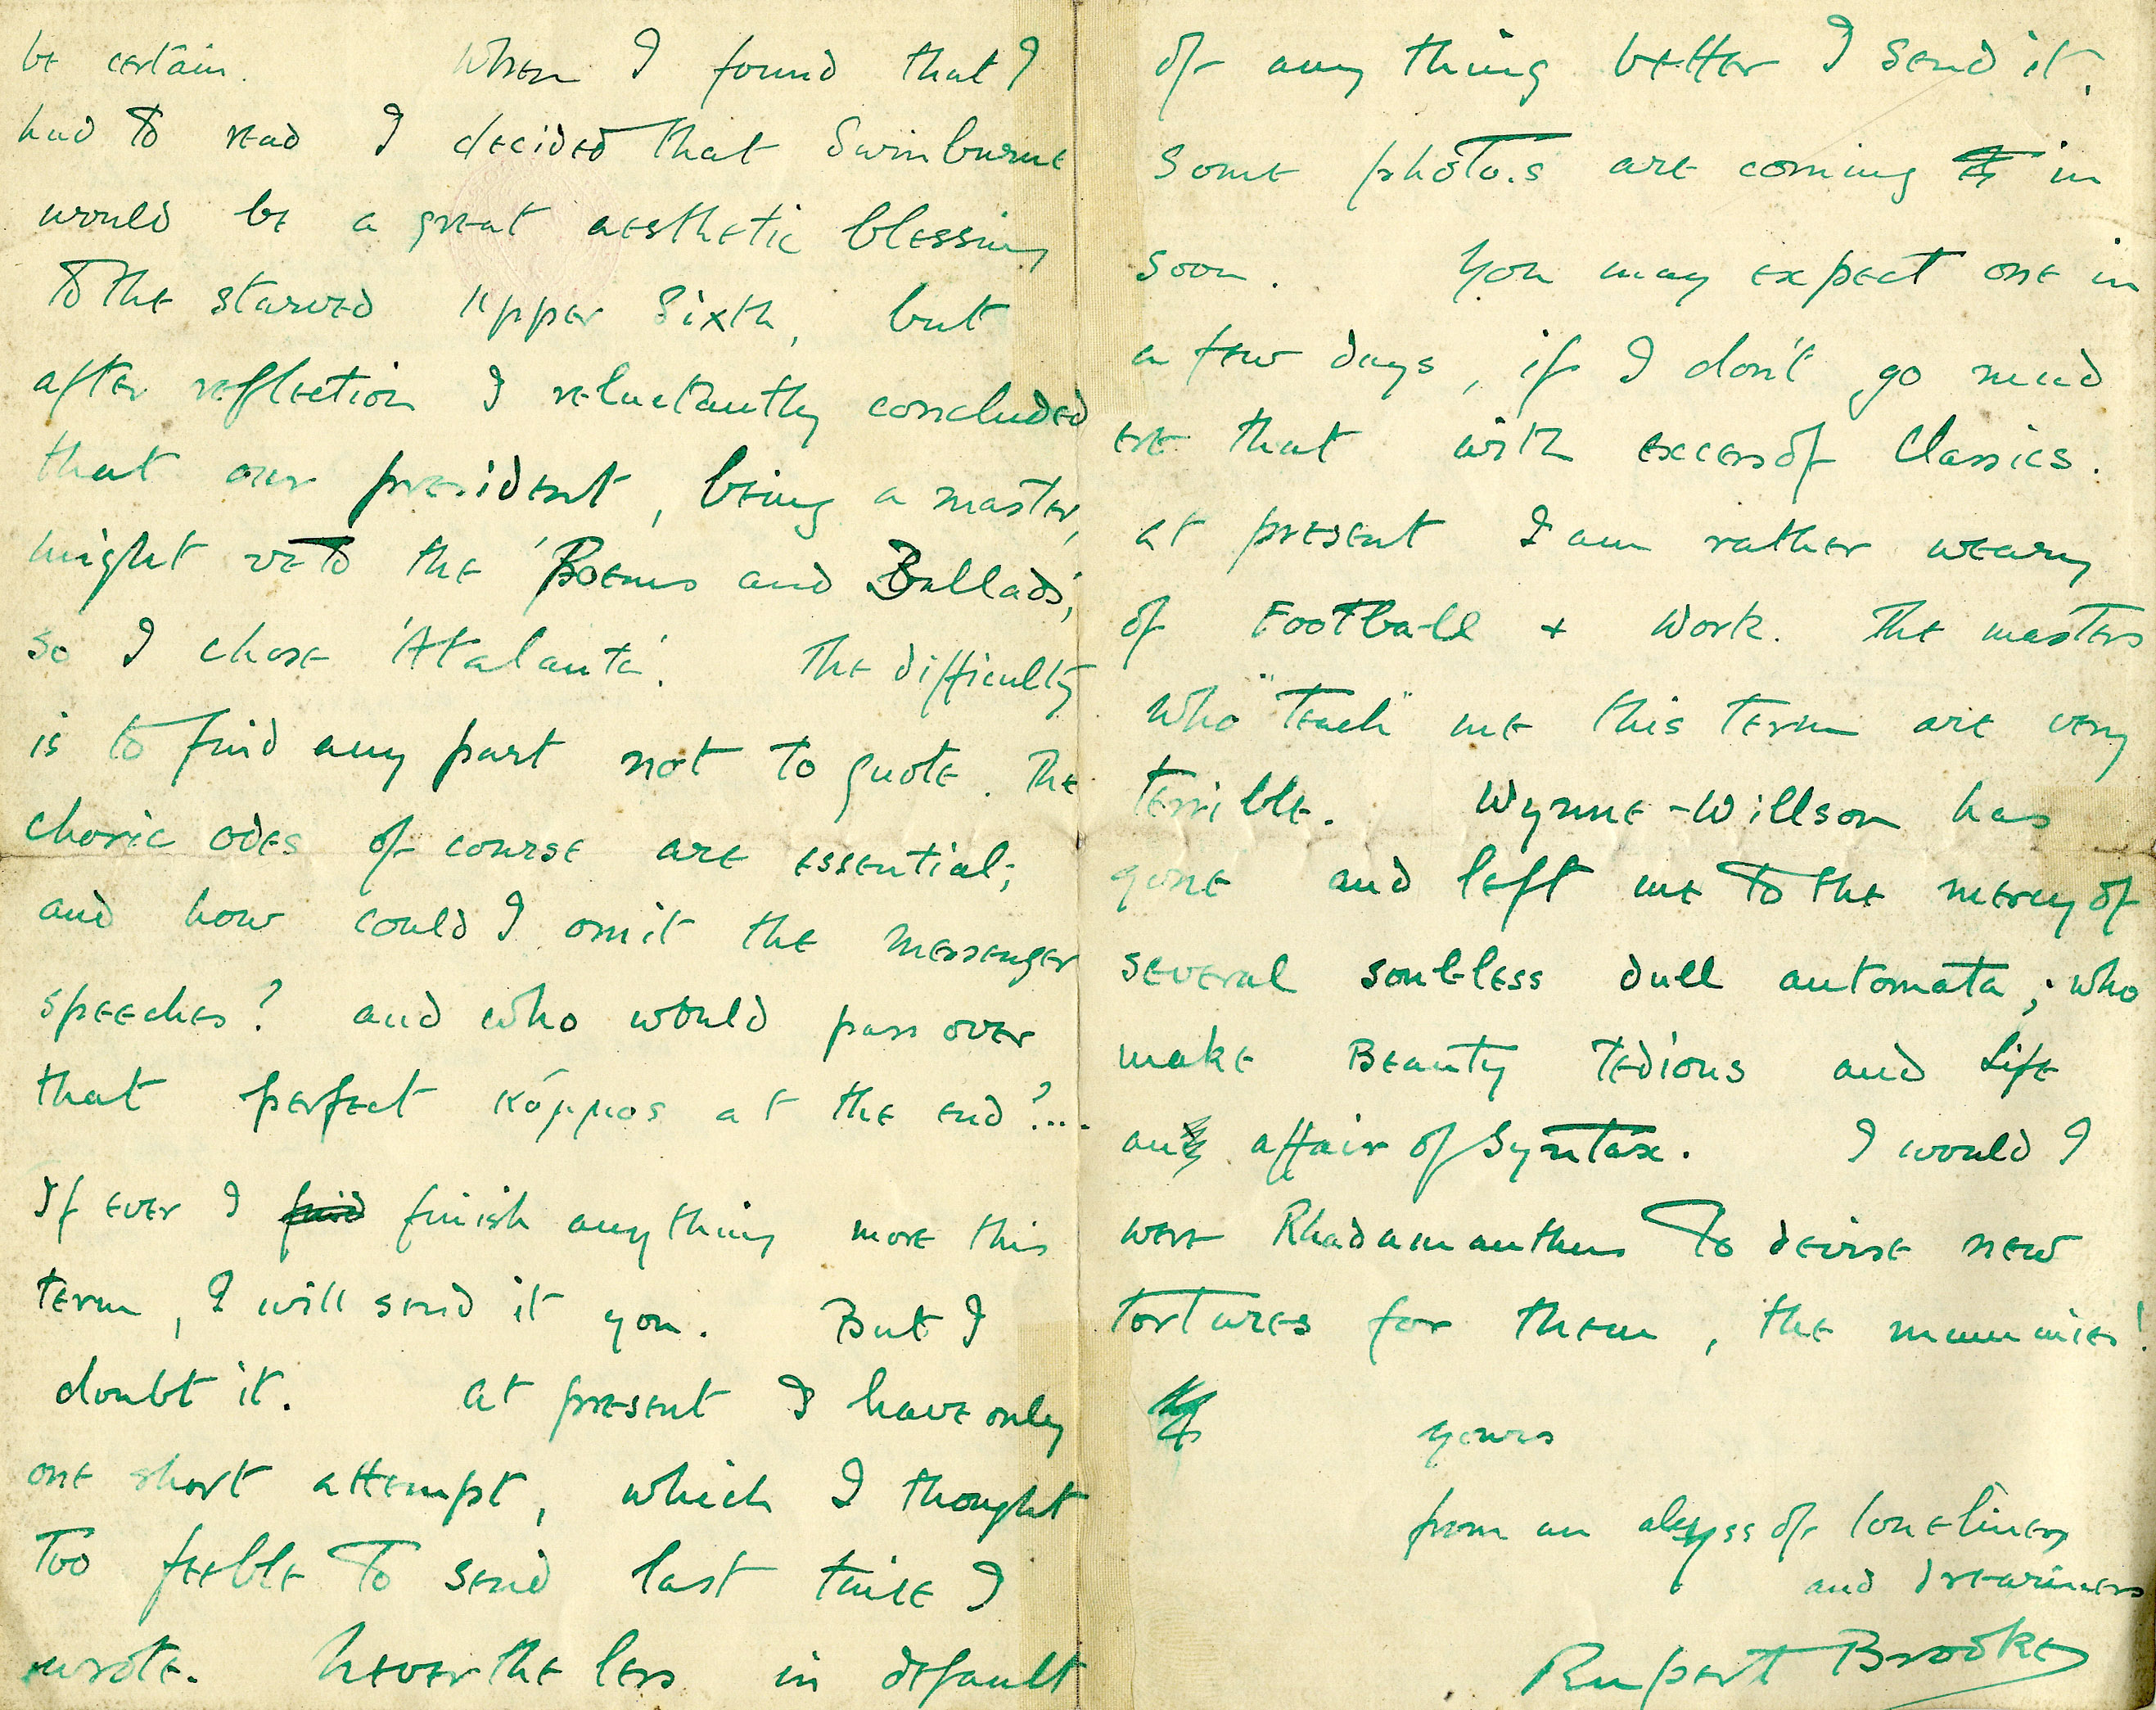 be certain. When I found that I
had to read I decided that Swinburne
would be a great aesthetic blessing
to the starved Upper Sixth, but
after reflection I reluctantly concluded
that our president, being a master,
might veto the 'Poems and Ballads';
so I chose 'Atalanta'. The difficulty
is to find any part not to quote. The
choric odes of course are essential;
and how could I omit the messenger
speeches? and who would pass over
that perfect κόμμος at the end?....
If ever I find finish anything more this
term, I will send it you. But I
doubt it. At present I have only
one short attempt, which I thought
too feeble to send last time I
wrote. Nevertheless in default
of any thing better I send it.
Some photo.s are coming in
soon. You may expect one in
a few days, if I don't go mad
ere that with excess of Classics.
At present I am rather weary
of Football + Work. The masters
who "teach" me this term are very
terrible. Wynne-Willson has
gone and left me to the mercy of
several soul-less dull automata; who
make Beauty tedious and Life
an affair of Syntax. I would I
were Rhadamanthus to devise new
tortures for them, the mummies!
yours
from an abyss of loneliness
and dreariness
Rupert Brooke